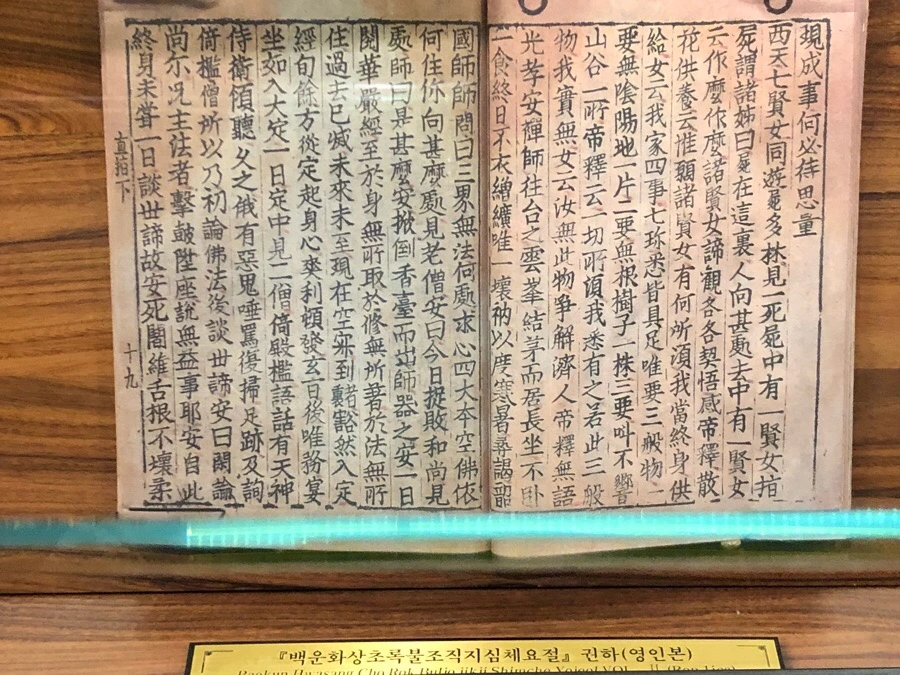 現成事何必待思量
西天七賢女同遊屍多林見一死屍中有一賢女指
屍謂諸姊曰屍在這裏人向甚處去中有一賢女
云作麽作麽諸賢女諦觀各各契悟感帝釋散
花供養云惟願諸賢女有何所湏我當終身供
給女云我家四事七珎悉皆具足唯要三般物一
要無陰陽地一片二要無根樹子一株三要叫不響
山谷一所帝釋云一切所湏我悉有之若此三般
物我實無女云汝無此物爭解濟人帝釋無語
光孝安禪師往台之雲峯結茅而居長坐不卧
一食終日不衣繒纊唯一壞衲以度寒暑尋謁韶
國師師問曰三界無法何處求心四大本空佛依
何住你向甚麽處見老僧安曰今日捉敗和尚見
處師曰是甚麽安掀倒香臺而出師器之安一日
閱華嚴經至於身無所取於修無所著於法無所
住過去已滅未來未至現在空寂到豁然入定
經旬餘方從定起身心爽利頓發玄旨後唯務宴
坐如入大定一日定中見二僧倚殿檻語話有天神
侍衛傾聽久之俄有惡鬼唾罵復掃足跡及詢
倚檻僧所以乃初論佛法後談世諦安曰閑論
尚尔况主法者擊皷陞座說無益事耶安自此
終身未甞一日談世諦故安死闍維舌根不壞柔
直指下 十九
『백운화상초록불조직지심체요절』 권하(영인본)